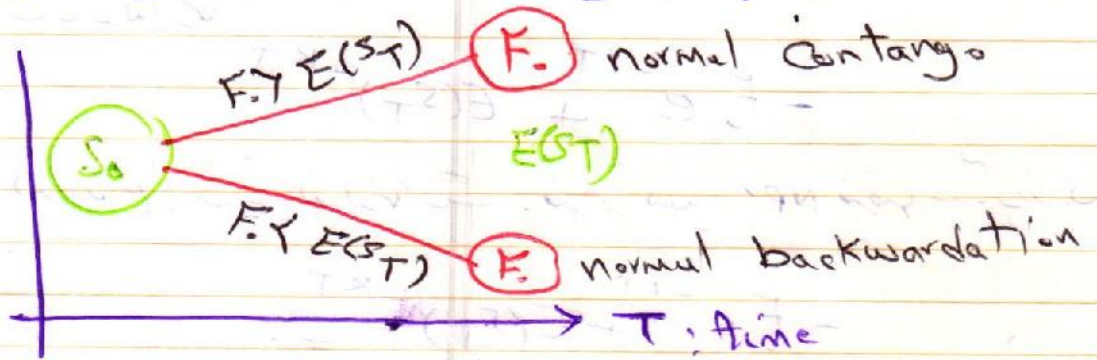 F. > E(S_T) F. normal Contango
S₀ E(S_T)
F. < E(S_T) F. normal backwardation
T: time